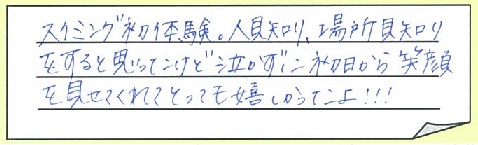 スイミング初体験。人見知り、場所見知り
をすると思ってたけど泣かずに初日から笑顔
を見せてくれてとっても嬉しかったよ!!!